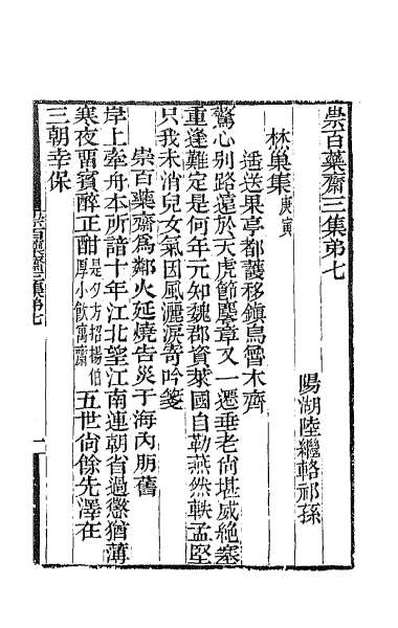 崇百藥齋三集弟七
陽湖陸繼輅祁孫
林巢集庚寅
遙送果亭都護移鎮烏魯木齊
驚心别路遠於天虎節麾章又一遷垂老尙堪威絶塞
重逢難定是何年元知魏郡資萊國自勒燕然軼孟堅
只我未消兒女氣因風灑淚寄吟箋
崇百藥齋爲鄰火延燒告災于海内朋舊
岸上牽舟本所諳十年江北望江南連朝省過愆猶薄
寒夜畱賓醉正酣是夕方招楊伯厚小飲寓齋五世尙餘先澤在
三朝幸保
崇百藥齋三集弟七
一